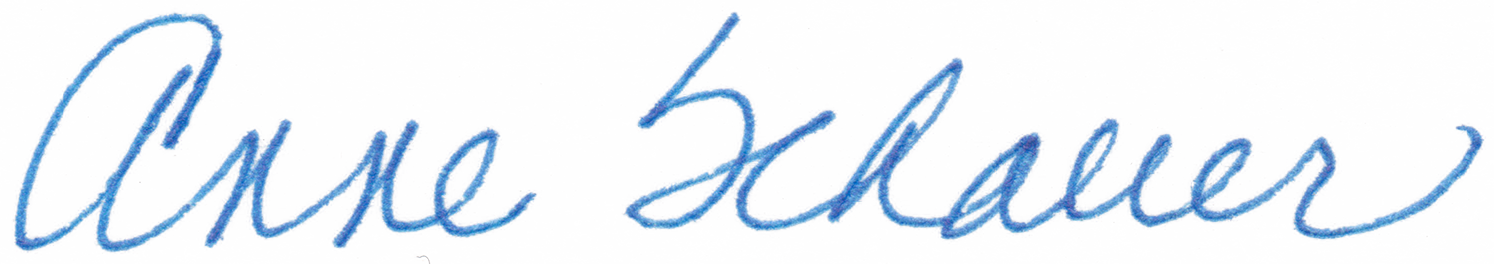 Anne Schauer